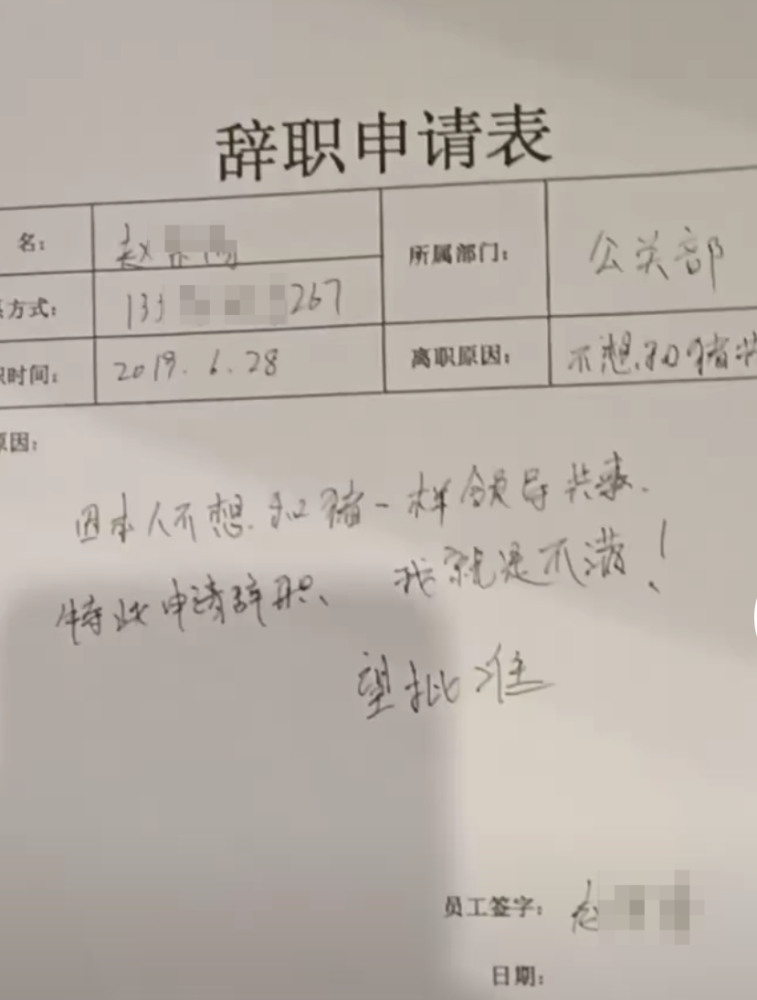 辞职申请表
名： 赵
所属部门： 公关部
系方式： 13 267
职时间： 2019.6.28
离职原因： 不想和猪共
原因：
因本人不想和猪一样领导共事.
特此申请辞职、 我就是不满！
望批准
员工签字： 赵
日期：